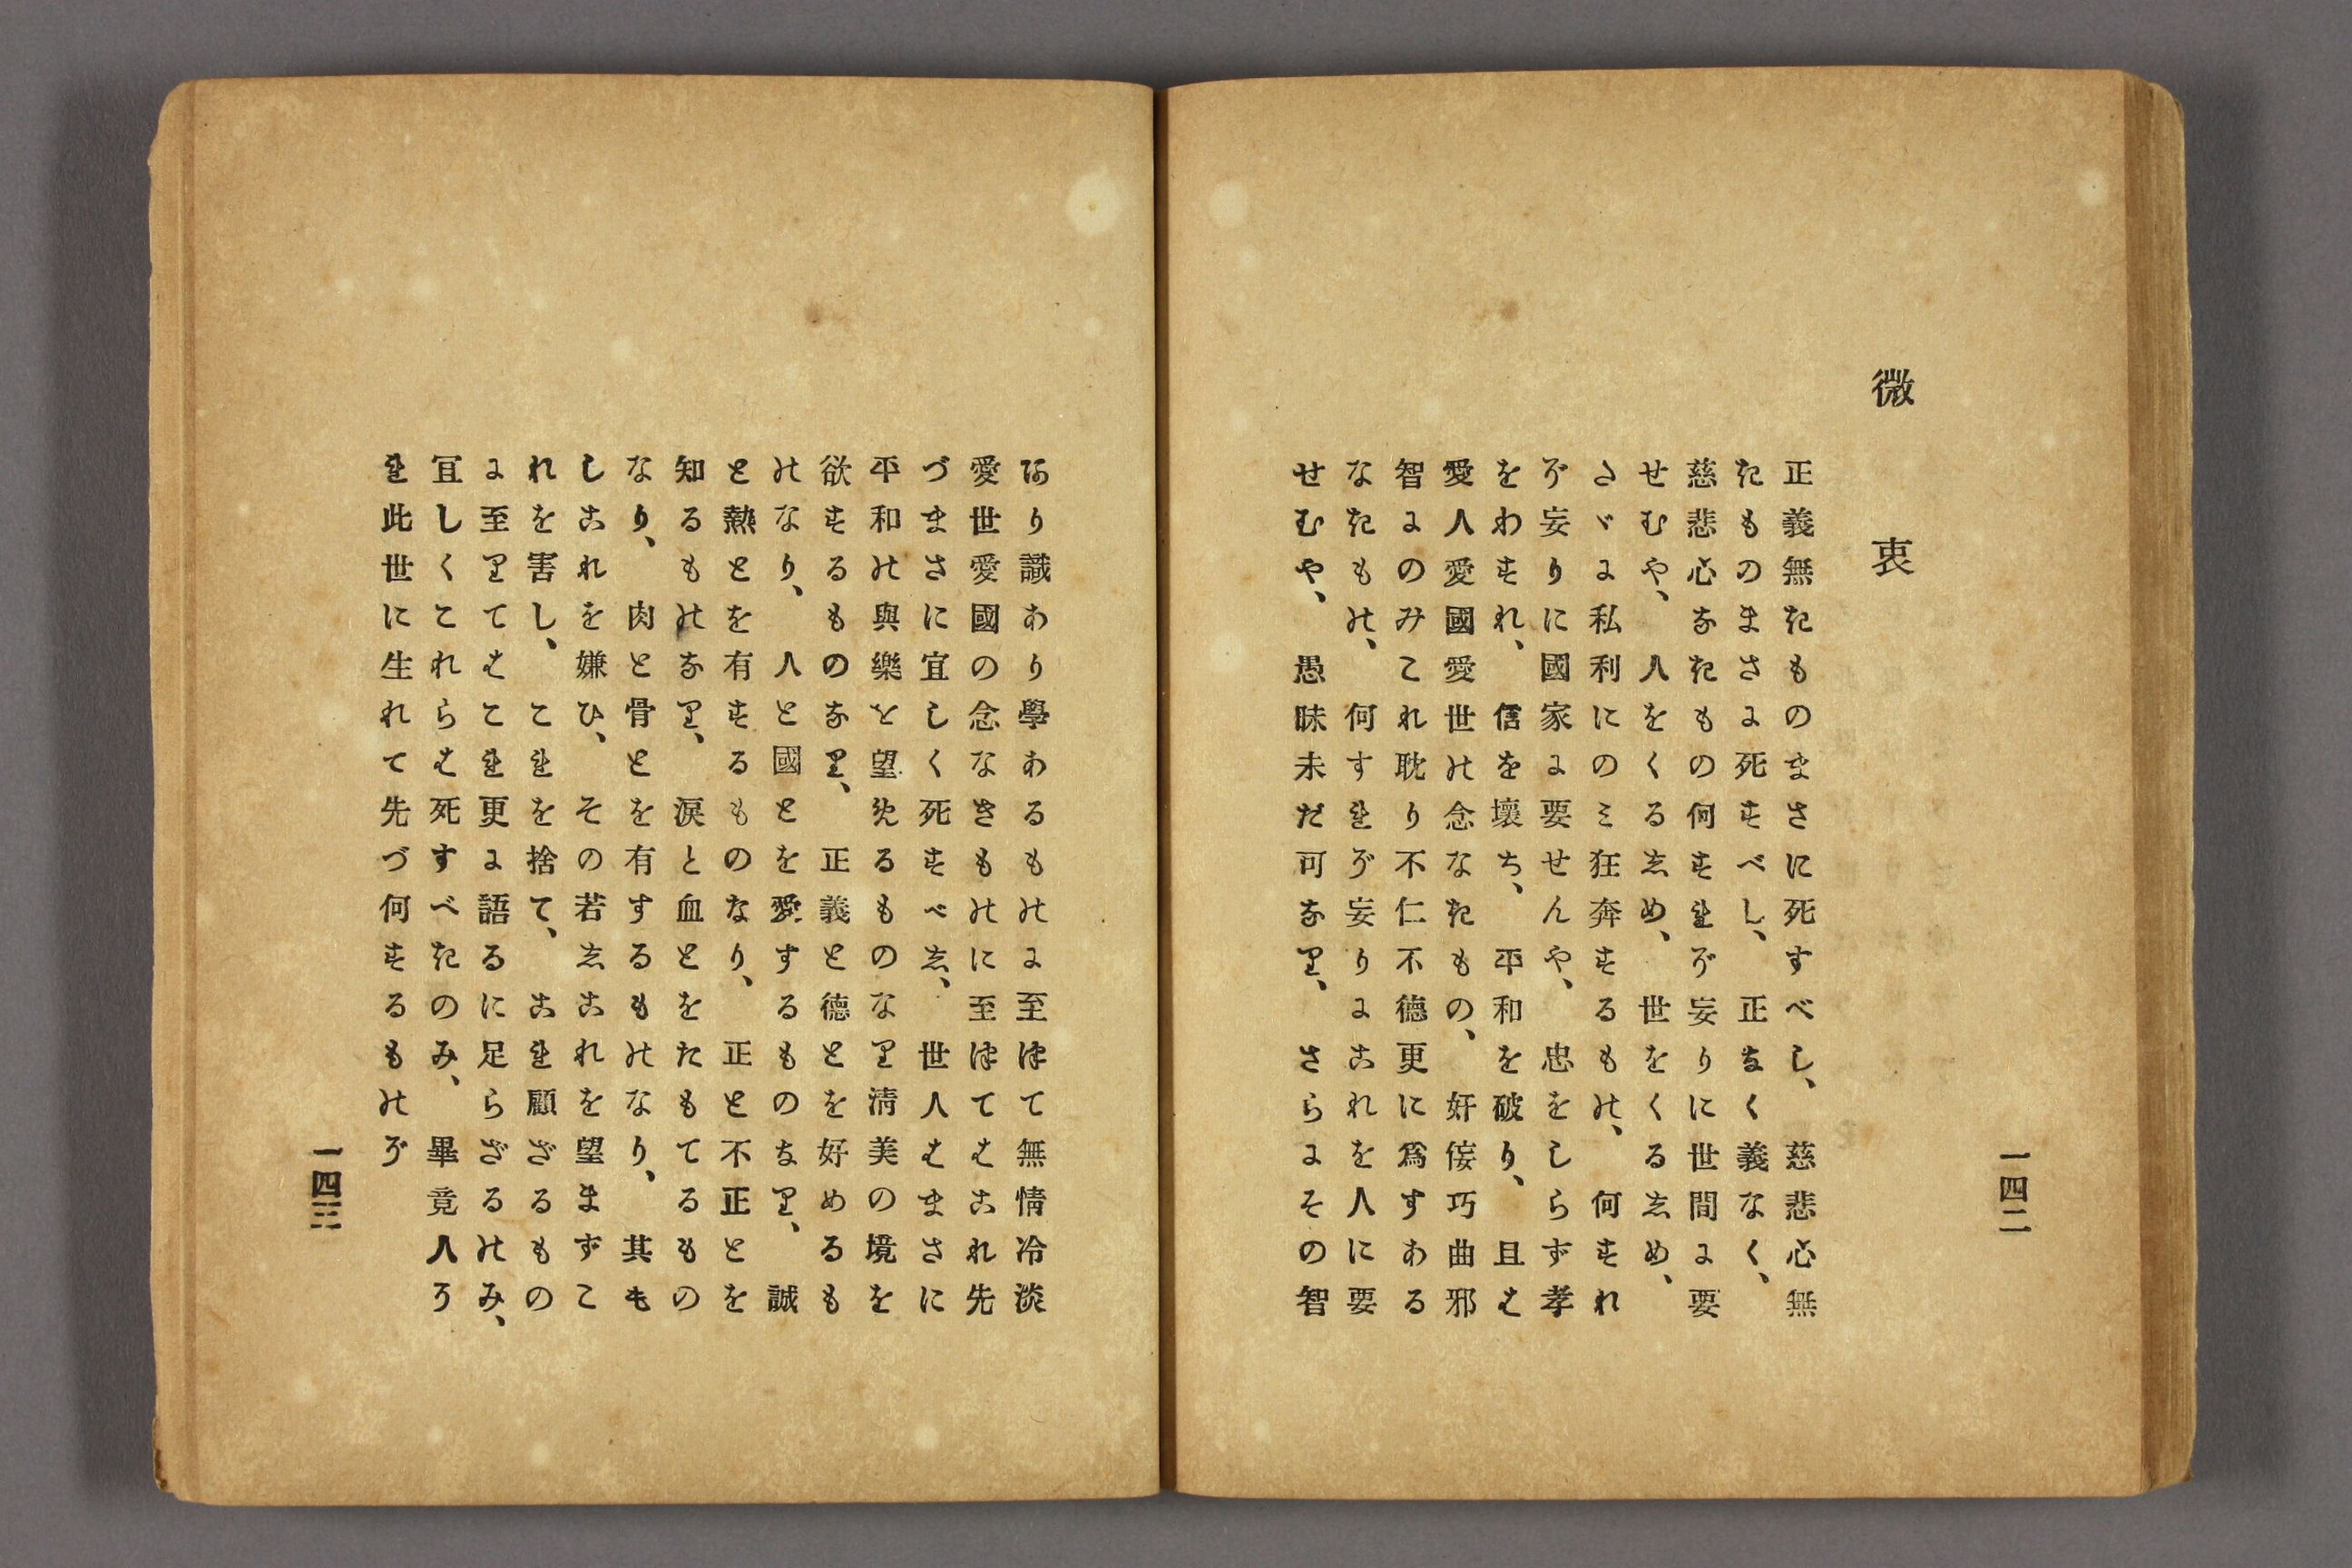 一四二
微衷
正義無きものまさに死すべし、慈悲心無
きものまさに死すべし、正なく義なく、
慈悲心なきもの何すれぞ妄りに世間に要
せむや、人をくるしめ、世をくるしめ、
たゞに私利にのミ狂奔するもの、何すれ
ぞ妄りに國家に要せんや、忠をしらず孝
をわすれ、信を壞ち、平和を破り、且は
愛人愛國愛世の念なきもの、奸佞巧曲邪
智にのみこれ耽り不仁不德更に爲すある
なきもの、何すれぞ妄りにこれを人に要
せむや、愚昧未だ可なり、さらにその智
あり識あり學あるものに至つて無情冷淡
愛世愛國の念なきものに至つてはこれ先
づまさに宜しく死すべし、世人はまさに
平和の與樂を望めるものなり淸美の境を
欲するものなり、正義と德とを好めるも
のなり、人と國とを愛するものなり、誠
と熱とを有するものなり、正と不正とを
知るものなり、淚と血とをたもてるもの
なり、肉と骨とを有するものなり、其も
しこれを嫌ひ、その若しこれを望まずこ
れを害し、これを捨て、これを顧ざるもの
に至りてはこれ更に語るに足らざるのみ、
宜しくこれらは死すべきのみ、畢竟人か
れ此世に生れて先づ何するものぞ
一四三